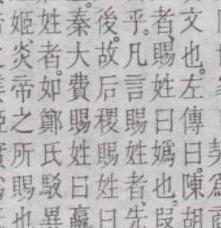 文也。左傳曰。陳胡
者、賜姓曰嬀也。叚
乎。凡言賜姓者、先
後。故后稷賜姓曰
秦大費賜姓曰嬴
姓者。如鄭氏駁異
姬、炎帝之所賜也